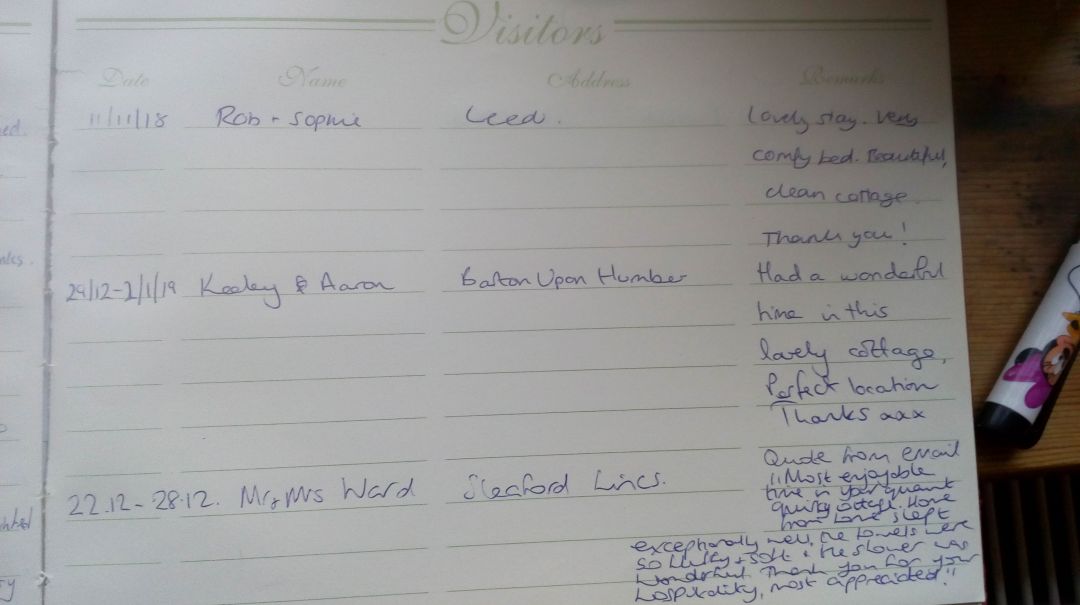 Visitors
Date Name Address Remarks
ed. 11/11/18 Rob + Sophie Leed. Lovely stay. Very
comfy bed. Beautiful,
clean cottage.
Thank you!
29/12-2/1/19 Keeley & Aaron Barton Upon Humber Had a wonderful
time in this
lovely cottage,
Perfect location
Thanks xxx
Quote from email
22.12-28.12. Mr & Mrs Ward Sleaford Lincs. "Most enjoyable
time in your quaint
quirky cottage. Home
from home slept
exceptionally well, the towels were
so fluffy + soft & the shower was
wonderful. Thank you for your
hospitality, most appreciated!"